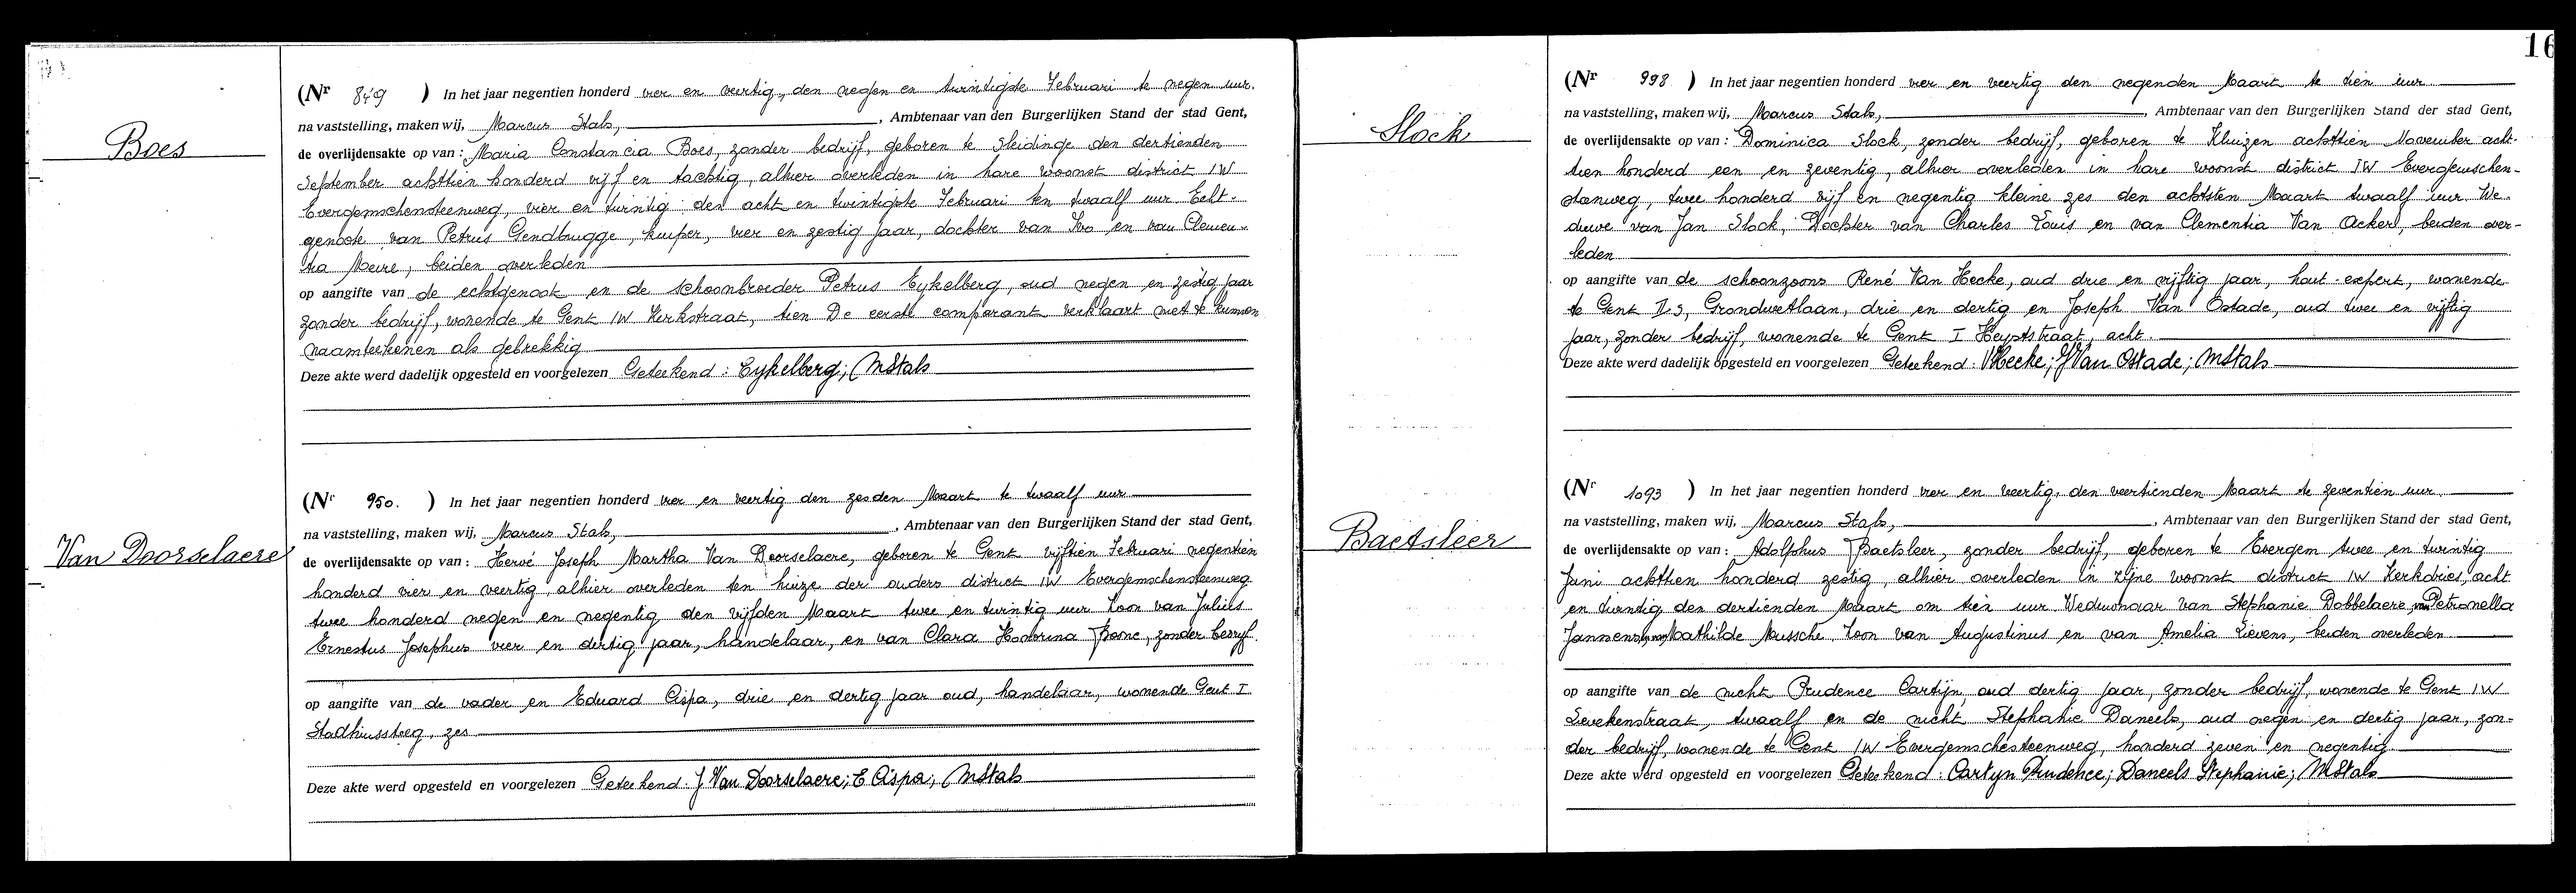 Boes
(Nr 849 ) In het jaar negentien honderd vier en veertig, den negen en twintigste Februari te negen uur.
na vaststelling, maken wij, Marcus Stals, , Ambtenaar van den Burgerlijken Stand der stad Gent,
de overlijdensakte op van : Maria Constancia Boes, zonder bedrijf, geboren te Sleidinge den dertienden
September achttien honderd vijf en tachtig, alhier overleden in hare woonst district IW
Evergemschensteenweg, vier en twintig den acht en twintigste Februari ten twaalf uur Echt-
genoote van Petrus Gendbrugge, kuiper, vier en zestig jaar, dochter van Ivo en van Clemen-
tia Meire, beiden overleden
op aangifte van de echtgenoot en de schoonbroeder Petrus Eykelberg, oud negen en zestig jaar
zonder bedrijf, wonende te Gent IW Kerkstraat, tien De eerste comparant verklaart niet te kunnen
naamteekenen als gebrekkig
Deze akte werd dadelijk opgesteld en voorgelezen Geteekend : Eykelberg; MStals
Van Doorselaere
(Nr 950. ) In het jaar negentien honderd vier en veertig den zesden Maart te twaalf uur
na vaststelling, maken wij, Marcus Stals, , Ambtenaar van den Burgerlijken Stand der stad Gent,
de overlijdensakte op van : Hervé Joseph Martha Van Doorselaere, geboren te Gent vijftien Februari negentien
honderd vier en veertig, alhier overleden ten huize der ouders district IW Evergemschensteenweg
twee honderd negen en negentig, den vijfden Maart twee en twintig uur Zoon van Julius
Ernestus Josephus vier en dertig jaar, handelaar, en van Clara Boone, zonder bedrijf.
op aangifte van de vader en Eduard Cispa, drie en dertig jaar oud, handelaar, wonende Gent I
Stadhuissteeg, zes
Deze akte werd opgesteld en voorgelezen Geteekend : J Van Doorselaere; E Cispa; MStals
16
Slock
(Nr 998 ) In het jaar negentien honderd vier en veertig den negenden Maart te tien uur
na vaststelling, maken wij, Marcus Stals, , Ambtenaar van den Burgerlijken Stand der stad Gent,
de overlijdensakte op van : Dominica Slock, zonder bedrijf, geboren te Kluizen achttien November acht-
tien honderd een en zeventig, alhier overleden in hare woonst district IW Evergemschen-
steenweg, twee honderd vijf en negentig kleine zes den achtsten Maart twaalf uur. We-
duwe van Jan Slock, Dochter van Charles Louis en van Clementia Van Ackere, beiden over-
leden
op aangifte van de schoonzoons René Van Hecke, oud drie en vijftig jaar, hout-expert, wonende
te Gent II s, Grondwetlaan, drie en dertig en Joseph Van Ostade, oud twee en vijftig
jaar, zonder bedrijf, wonende te Gent I Heyststraat, acht.
Deze akte werd dadelijk opgesteld en voorgelezen Geteekend : VHecke; JVan Ostade; MStals
Baetsleer
(Nr 1093 ) In het jaar negentien honderd vier en veertig, den veertienden Maart te zeventien uur
na vaststelling, maken wij, Marcus Stals, , Ambtenaar van den Burgerlijken Stand der stad Gent,
de overlijdensakte op van : Adolphus Baetsleer, zonder bedrijf, geboren te Evergem twee en twintig
Juni achttien honderd zestig, alhier overleden in zijne woonst district IW Kerkdries, acht
en twintig den dertienden Maart om tien uur Weduwnaar van Stephanie Dobbelaere, van Petronella
Janssens, van Mathilde Mussche, Zoon van Augustinus en van Amelia Lievens, beiden overleden
op aangifte van de nicht Prudence Cartijn, oud dertig jaar, zonder bedrijf, wonende te Gent IW
Levekenstraat, twaalf en de nicht Stephanie Daneels, oud negen en dertig jaar, zon-
der bedrijf, wonende te Gent IW Evergemschesteenweg, honderd zeven en negentig
Deze akte werd opgesteld en voorgelezen Geteekend : Cartyn Prudence; Daneels Stephanie; MStals